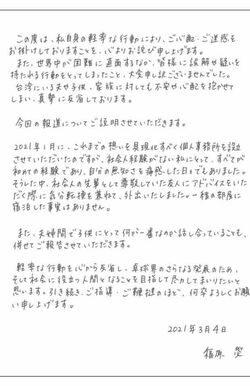 この度は、私自身の軽率な行動により、ご心配・ご迷惑を
お掛けしておりますことを、心よりお詫び申し上げます。
また、世界中が困難に直面するなか、皆様に誤解や疑いを
持たれる行動をとってしまったこと、大変申し訳ございませんでした。
台湾にいる子供、家族に対しても不安や心配を抱かせて
しまい、真摯に反省しております。
今回の報道についてご説明させていただきます。
2021年1月に、これまでの想いを具現化すべく個人事務所を設立
させていただいたのですが、社会人経験がない私にとって、すべてが
初めての経験であり、自分の無知さを痛感した日々でもありました。
そうした中、社会人の先輩として尊敬していた友人にアドバイスをいた
だく際に気分転換を兼ねて、外出いたしました。一緒の部屋に
宿泊した事実はありません。
また、夫婦間で子供にとって何が一番なのか話し合っていることも、
併せてご報告させていただきます。
軽率な行動を心から反省し、卓球界のさらなる発展のため、
そして社会に役立つ人間となることを目指して尽力してまいりたいと
思います。引き続き、ご指導・ご鞭撻のほど、何卒よろしくお願
い申し上げます。
2021年3月4日
福原 愛